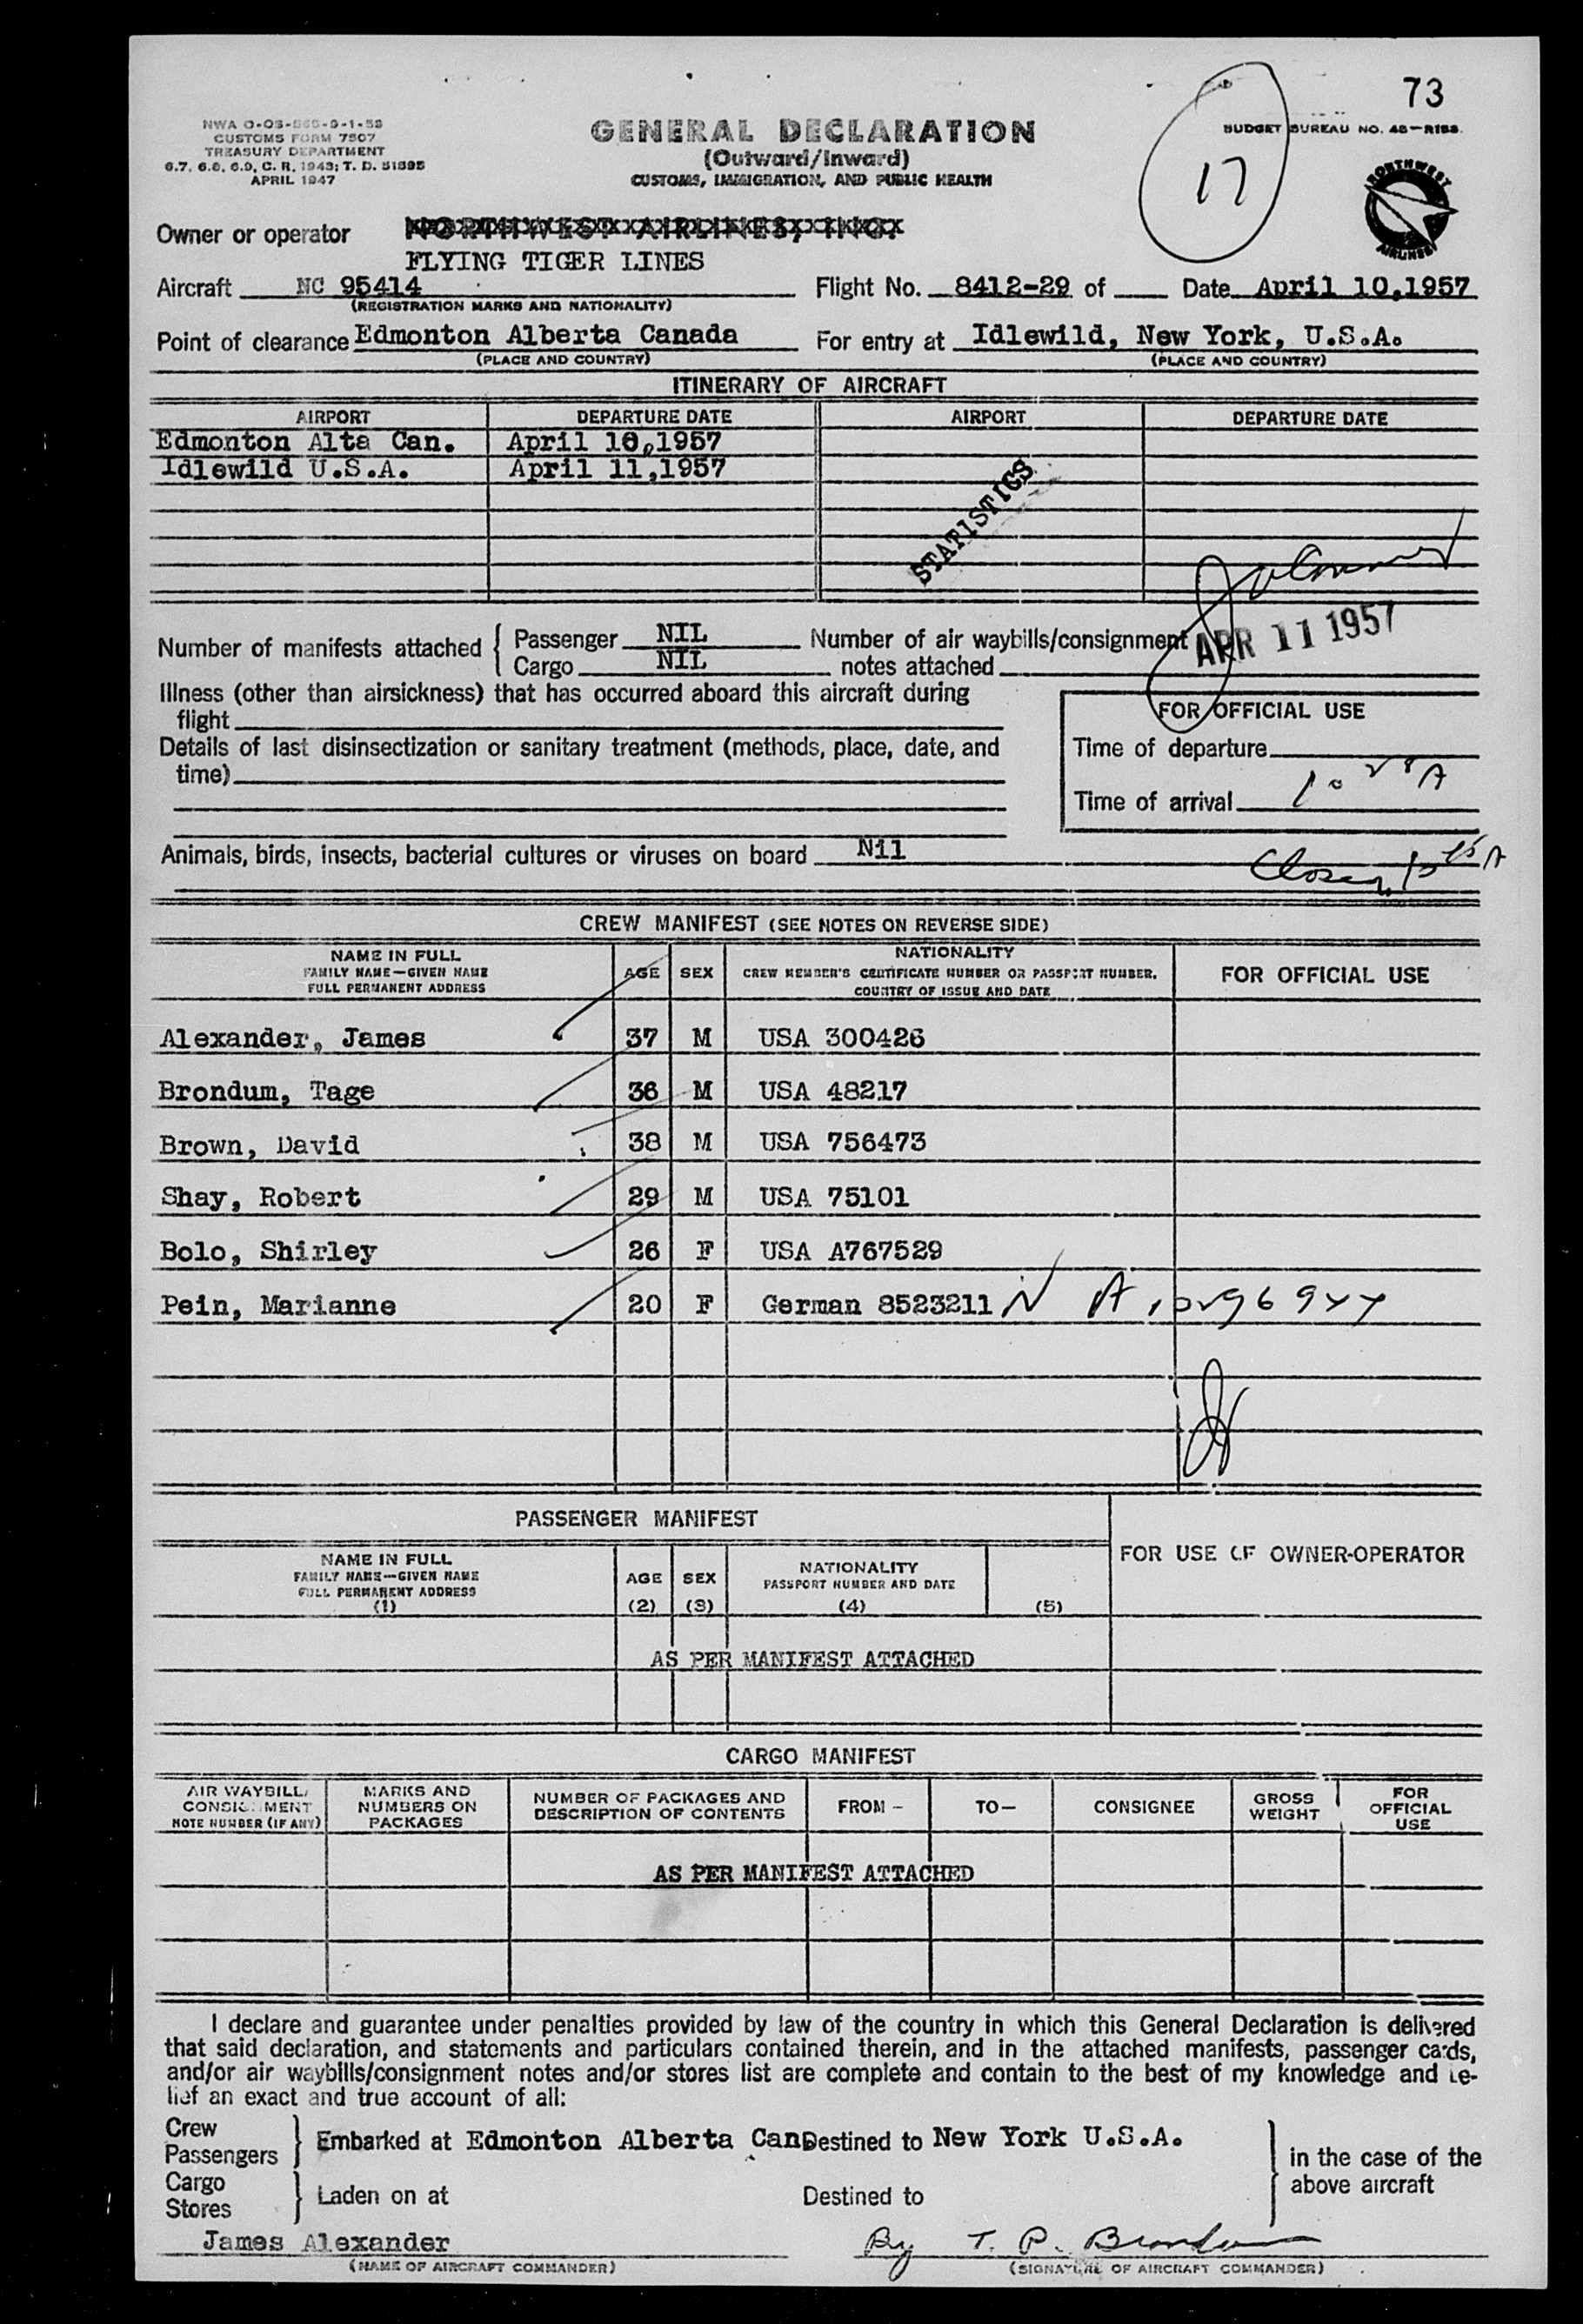 73
NWA O-OS-565-9-1-53
CUSTOMS FORM 7507
TREASURY DEPARTMENT
6.7, 6.8, 6.9, C. R. 1943; T. D. 51895
APRIL 1947
GENERAL DECLARATION
(Outward/Inward)
CUSTOMS, IMMIGRATION, AND PUBLIC HEALTH
17
BUDGET BUREAU NO. 48-R153.
NORTHWEST AIRLINES
Owner or operator NORTHWEST AIRLINES, INC.
FLYING TIGER LINES
Aircraft NC 95414 Flight No. 8412-29 of Date April 10,1957
(REGISTRATION MARKS AND NATIONALITY)
Point of clearance Edmonton Alberta Canada For entry at Idlewild, New York, U.S.A.
(PLACE AND COUNTRY) (PLACE AND COUNTRY)
ITINERARY OF AIRCRAFT
AIRPORT DEPARTURE DATE AIRPORT DEPARTURE DATE
Edmonton Alta Can. April 10,1957
Idlewild U.S.A. April 11,1957
STATISTICS
Number of manifests attached { Passenger NIL Number of air waybills/consignment
Cargo NIL notes attached
APR 11 1957
Illness (other than airsickness) that has occurred aboard this aircraft during
flight
FOR OFFICIAL USE
Details of last disinsectization or sanitary treatment (methods, place, date, and
time)
Time of departure
Time of arrival 10 28 A
Animals, birds, insects, bacterial cultures or viruses on board Nil
CREW MANIFEST (SEE NOTES ON REVERSE SIDE)
NAME IN FULL
FAMILY NAME—GIVEN NAME
FULL PERMANENT ADDRESS
AGE SEX
NATIONALITY
CREW MEMBER'S CERTIFICATE NUMBER OR PASSPORT NUMBER,
COUNTRY OF ISSUE AND DATE
FOR OFFICIAL USE
Alexander, James 37 M USA 300426
Brondum, Tage 36 M USA 48217
Brown, David 38 M USA 756473
Shay, Robert 29 M USA 75101
Bolo, Shirley 26 F USA A767529
Pein, Marianne 20 F German 8523211
PASSENGER MANIFEST
NAME IN FULL
FAMILY NAME—GIVEN NAME
FULL PERMANENT ADDRESS
(1)
AGE
(2)
SEX
(3)
NATIONALITY
PASSPORT NUMBER AND DATE
(4)
(5)
FOR USE OF OWNER-OPERATOR
AS PER MANIFEST ATTACHED
CARGO MANIFEST
AIR WAYBILL/
CONSIGNMENT
NOTE NUMBER (IF ANY)
MARKS AND
NUMBERS ON
PACKAGES
NUMBER OF PACKAGES AND
DESCRIPTION OF CONTENTS
FROM – TO— CONSIGNEE
GROSS
WEIGHT
FOR
OFFICIAL
USE
AS PER MANIFEST ATTACHED
I declare and guarantee under penalties provided by law of the country in which this General Declaration is delivered
that said declaration, and statements and particulars contained therein, and in the attached manifests, passenger cards,
and/or air waybills/consignment notes and/or stores list are complete and contain to the best of my knowledge and be-
lief an exact and true account of all:
Crew
Passengers } Embarked at Edmonton Alberta Can Destined to New York U.S.A.
in the case of the
above aircraft
Cargo
Stores } Laden on at Destined to
James Alexander By T. P. Brondum
(NAME OF AIRCRAFT COMMANDER) (SIGNATURE OF AIRCRAFT COMMANDER)